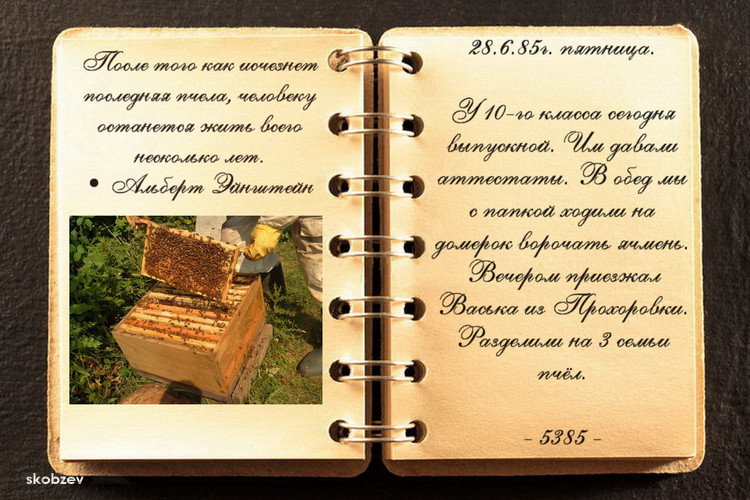 После того как исчезнет
последняя пчела, человеку
останется жить всего
несколько лет.
• Альберт Эйнштейн
28.6.85г. пятница.
У 10-го класса сегодня
выпускной. Им давали
аттестаты. В обед мы
с папкой ходили на
домерок ворочать ячмень.
Вечером приезжал
Васька из Прохоровки.
Разделили на 3 семьи
пчёл.
- 5385 -
skobzev